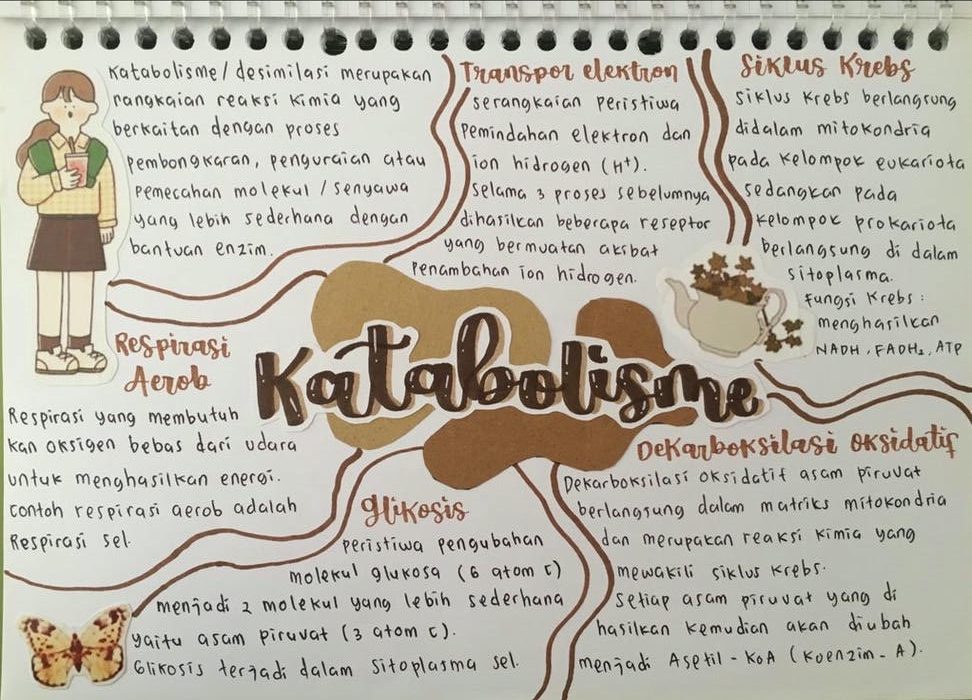 Katabolisme/desimilasi merupakan
rangkaian reaksi kimia yang
berkaitan dengan proses
pembongkaran, penguraian atau
pemecahan molekul / senyawa
yang lebih sederhana dengan
bantuan enzim.
Transpor elektron
serangkaian peristiwa
pemindahan elektron dan
ion hidrogen (H⁺).
Selama 3 proses sebelumnya
dihasilkan beberapa reseptor
yang bermuatan akibat
Penambahan ion hidrogen.
Siklus Krebs
Siklus Krebs berlangsung
didalam mitokondria
pada kelompok eukariota
sedangkan pada
kelompok prokariota
berlangsung di dalam
sitoplasma.
Fungsi Krebs :
menghasilkan
NADH, FADH₂, ATP
Katabolisme
Respirasi
Aerob
Respirasi yang membutuh
kan oksigen bebas dari udara
untuk menghasilkan energi.
Contoh respirasi aerob adalah
Respirasi sel.
Glikosis
Peristiwa pengubahan
molekul glukosa (6 atom C)
menjadi 2 molekul yang lebih sederhana
yaitu asam piruvat (3 atom C).
Glikosis terjadi dalam Sitoplasma sel.
Dekarboksilasi oksidatif
Dekarboksilasi oksidatif asam piruvat
berlangsung dalam matriks mitokondria
dan merupakan reaksi kimia yang
mewakili siklus krebs.
Setiap asam piruvat yang di
hasilkan kemudian akan diubah
menjadi Asetil - KoA (Koenzim - A).